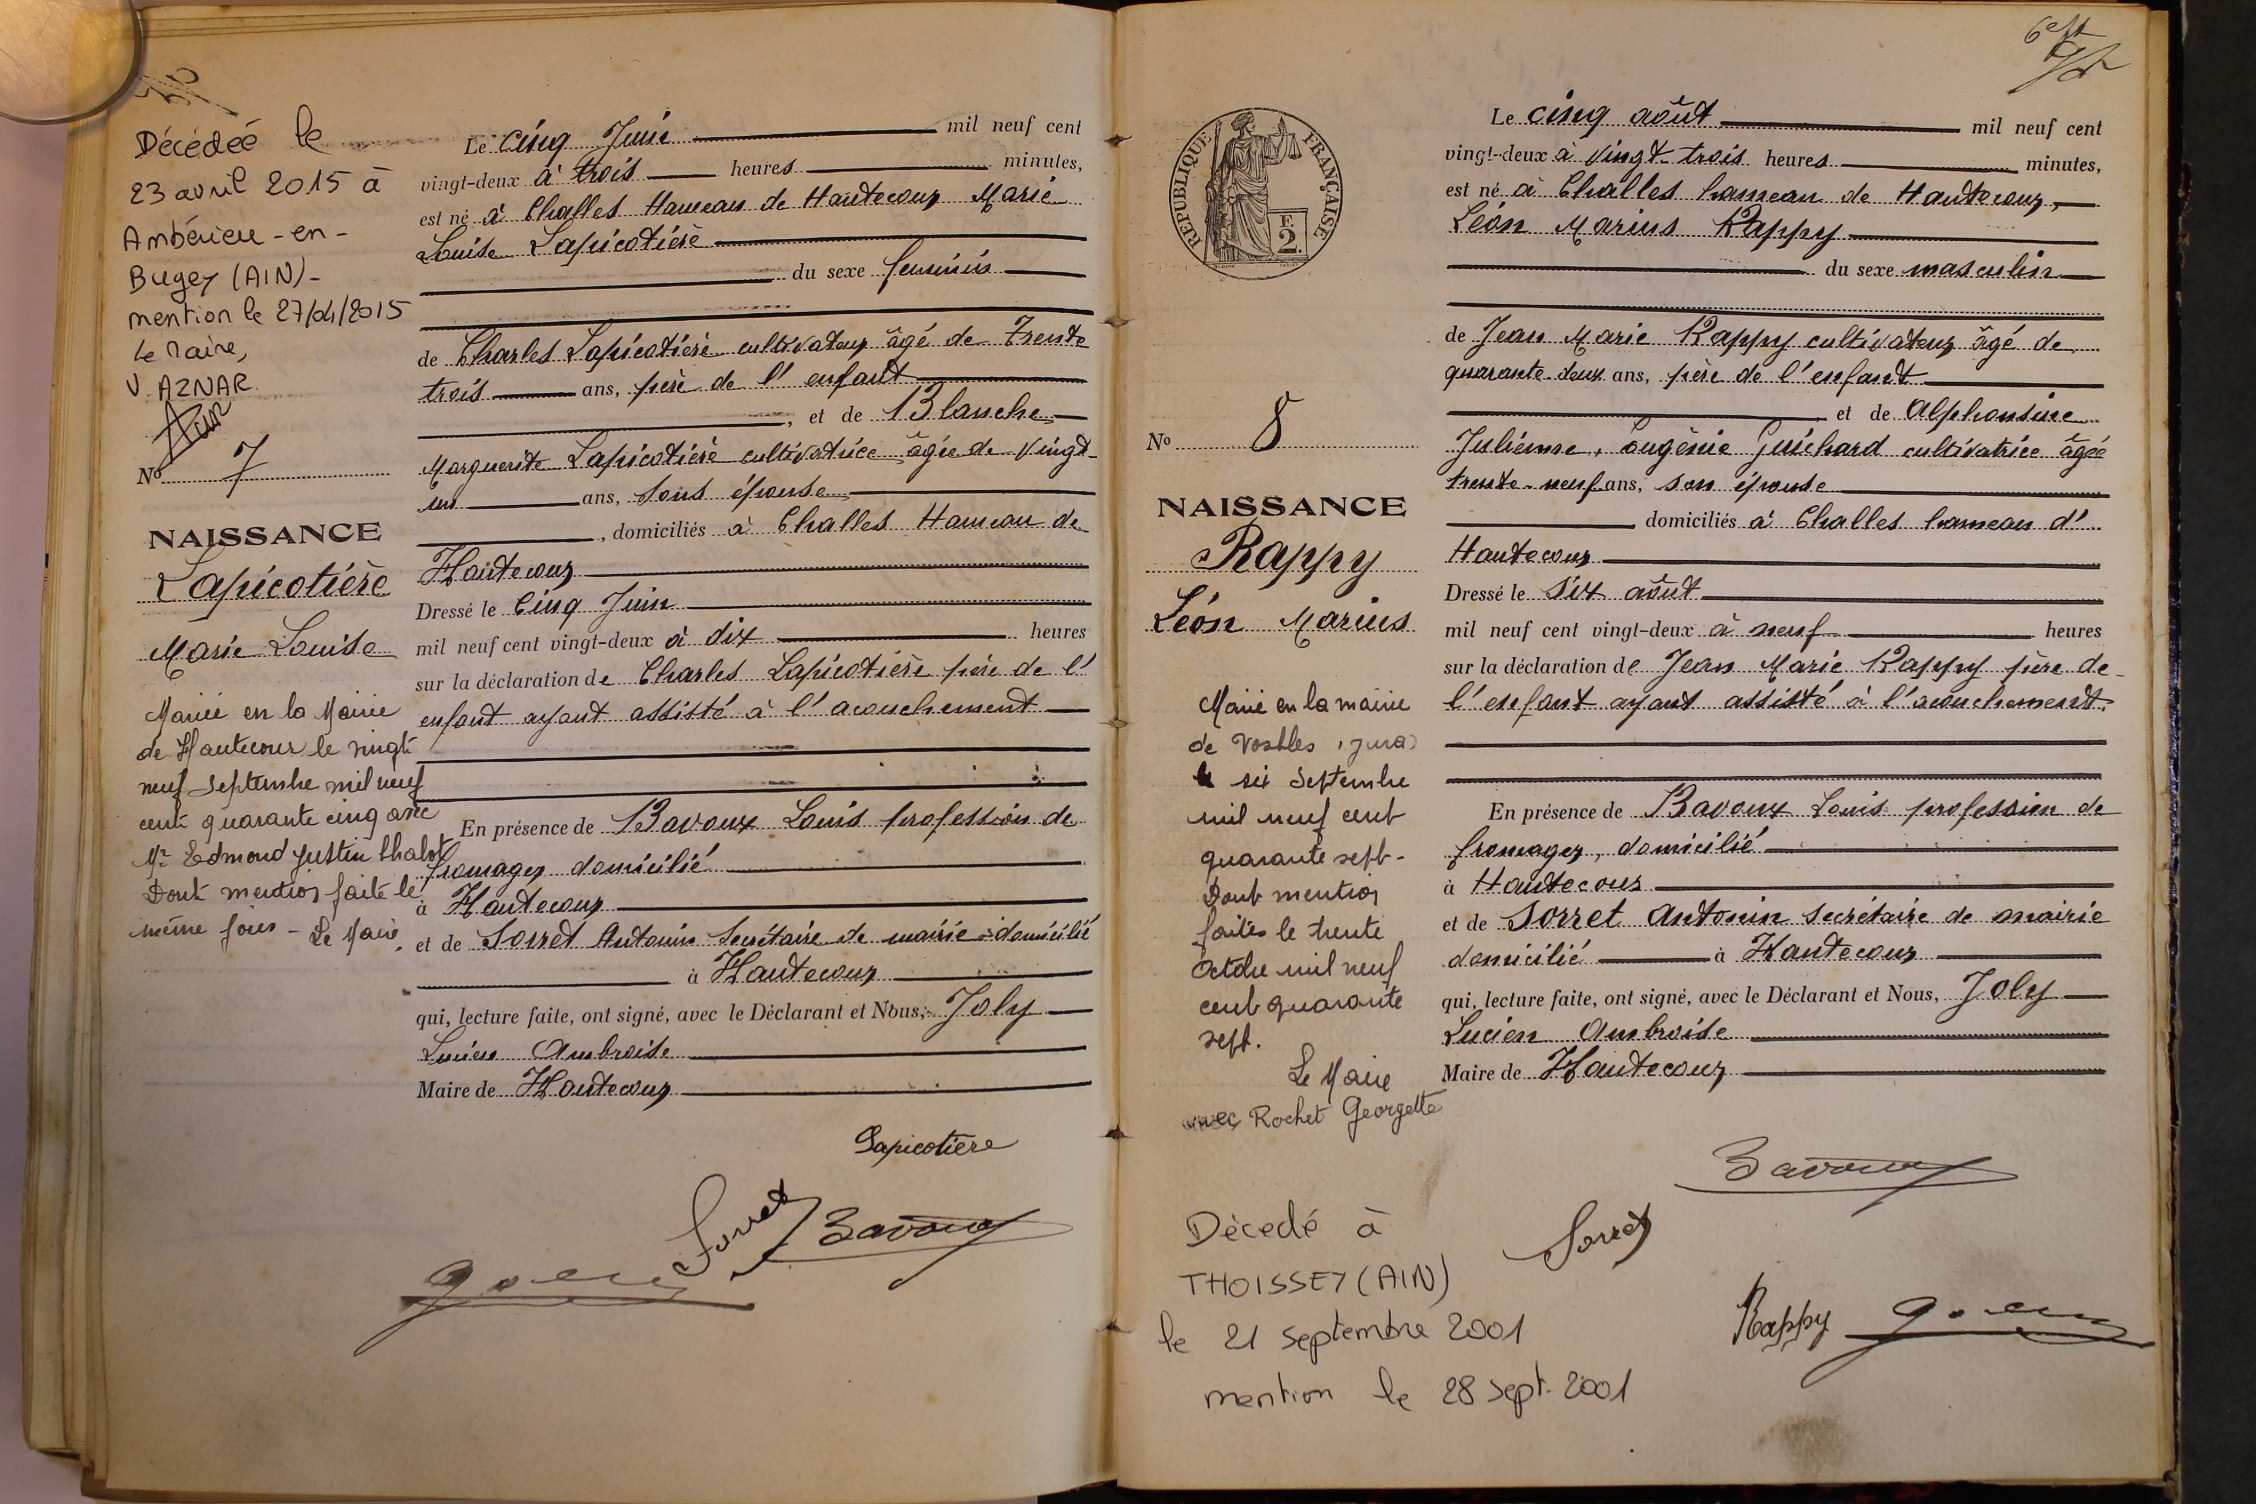 Décédée le
23 avril 2015 à
Ambérieu-en-
Bugey (AIN)-
mention le 27/04/2015
Le Maire,
V. AZNAR
No 7
NAISSANCE
Lapicotière
Marie Louise
Mariée en la Mairie
de Hautecour le vingt
neuf septembre mil neuf
cent quarante cinq avec
Mr Edmond Justin Chalot
Dont mention faite le
même jour - Le Maire
Le cinq Juin mil neuf cent
vingt-deux à trois heures minutes,
est né à Challes Hameau de Hautecour Marie
Louise Lapicotière
du sexe féminin
de Charles Lapicotière cultivateur âgé de Trente
trois ans, père de l'enfant
, et de Blanche
Marguerite Lapicotière cultivatrice âgée de Vingt-
un ans, sons épouse
, domiciliés à Challes Hameau de
Hautecour
Dressé le Cinq Juin
mil neuf cent vingt-deux à dix heures
sur la déclaration de Charles Lapicotière père de l'
enfant ayant assisté à l'acouchement
En présence de Bavoux Louis profession de
fromager domicilié
à Hautecour
et de Sorret Antonin Secrétaire de mairie domicilié
à Hautecour
qui, lecture faite, ont signé, avec le Déclarant et Nous, Joly
Lucien Ambroise
Maire de Hautecour
Lapicotière
Sorret
Bavoux
Joly
6eft
RÉPUBLIQUE FRANÇAISE
2F
No 8
NAISSANCE
Rappy
Léon Marius
Marié en la mairie
de Vosbles (Jura)
le six Septembre
mil neuf cent
quarante sept-
Dont mention
faite le trente
Octobre mil neuf
cent quarante
sept.
Le Maire
avec Rochet Georgette
Décedé à
THOISSEY (AIN)
le 21 septembre 2001
mention le 28 sept. 2001
Le cinq août mil neuf cent
vingt-deux à vingt-trois heures minutes,
est né à Challes hameau de Hautecour,
Léon Marius Rappy
du sexe masculin
de Jean Marie Rappy cultivateur âgé de
quarante-deux ans, père de l'enfant
et de Alphonsine
Julienne, Eugènie Guichard cultivatrice âgée
trente-neuf ans, son épouse
domiciliés à Challes hameau d'
Hautecour
Dressé le six août
mil neuf cent vingt-deux à neuf heures
sur la déclaration de Jean Marie Rappy père de
l'enfant ayant assisté à l'acouchement.
En présence de Bavoux Louis profession de
fromager, domicilié
à Hautecour
et de Sorret Antonin secrétaire de mairie
domicilié à Hautecour
qui, lecture faite, ont signé, avec le Déclarant et Nous, Joly
Lucien Ambroise
Maire de Hautecour
Bavoux
Sorret
Rappy Joly